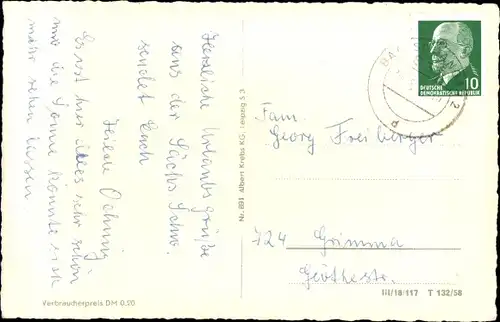 Herzliche Urlaubsgrüße
aus der Sächs. Schw.
sendet Euch
Oehmig
Es ist hier alles sehr schön
nur die Sonne könnte sich
mehr sehen lassen
Verbraucherpreis DM 0,20
Nr. 698 Albert Krebs KG. Leipzig S 3
10
DEUTSCHE
DEMOKRATISCHE REPUBLIK
Fam.
Georg Freiberger
724 Grimma
Goethestr.
III/18/117 T 132/58